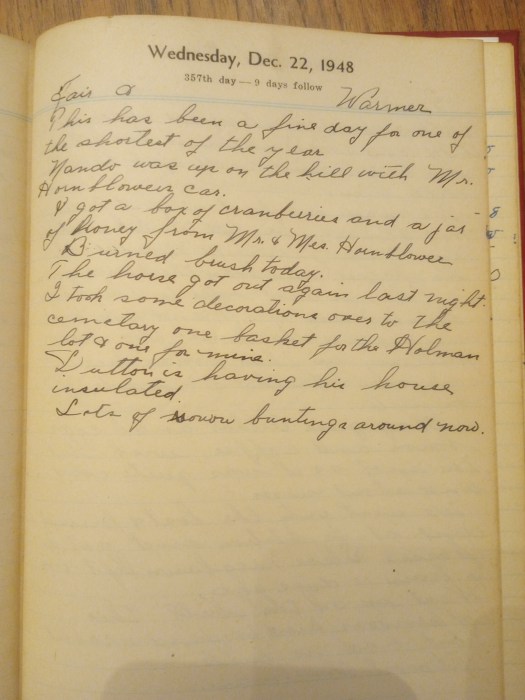 Wednesday, Dec. 22, 1948
357th day — 9 days follow
Fair & Warmer
This has been a fine day for one of
the shortest of the year
Nando was up on the hill with Mr.
Hornblowers car.
I got a box of cranberries and a jar
of honey from Mr. & Mrs. Hornblower
Burned brush today.
The horse got out again last night.
I took some decorations over to the
cemetary one basket for the Holman
lot & one for mine.
Dutton is having his house
insulated.
Lots of snow buntings around now.